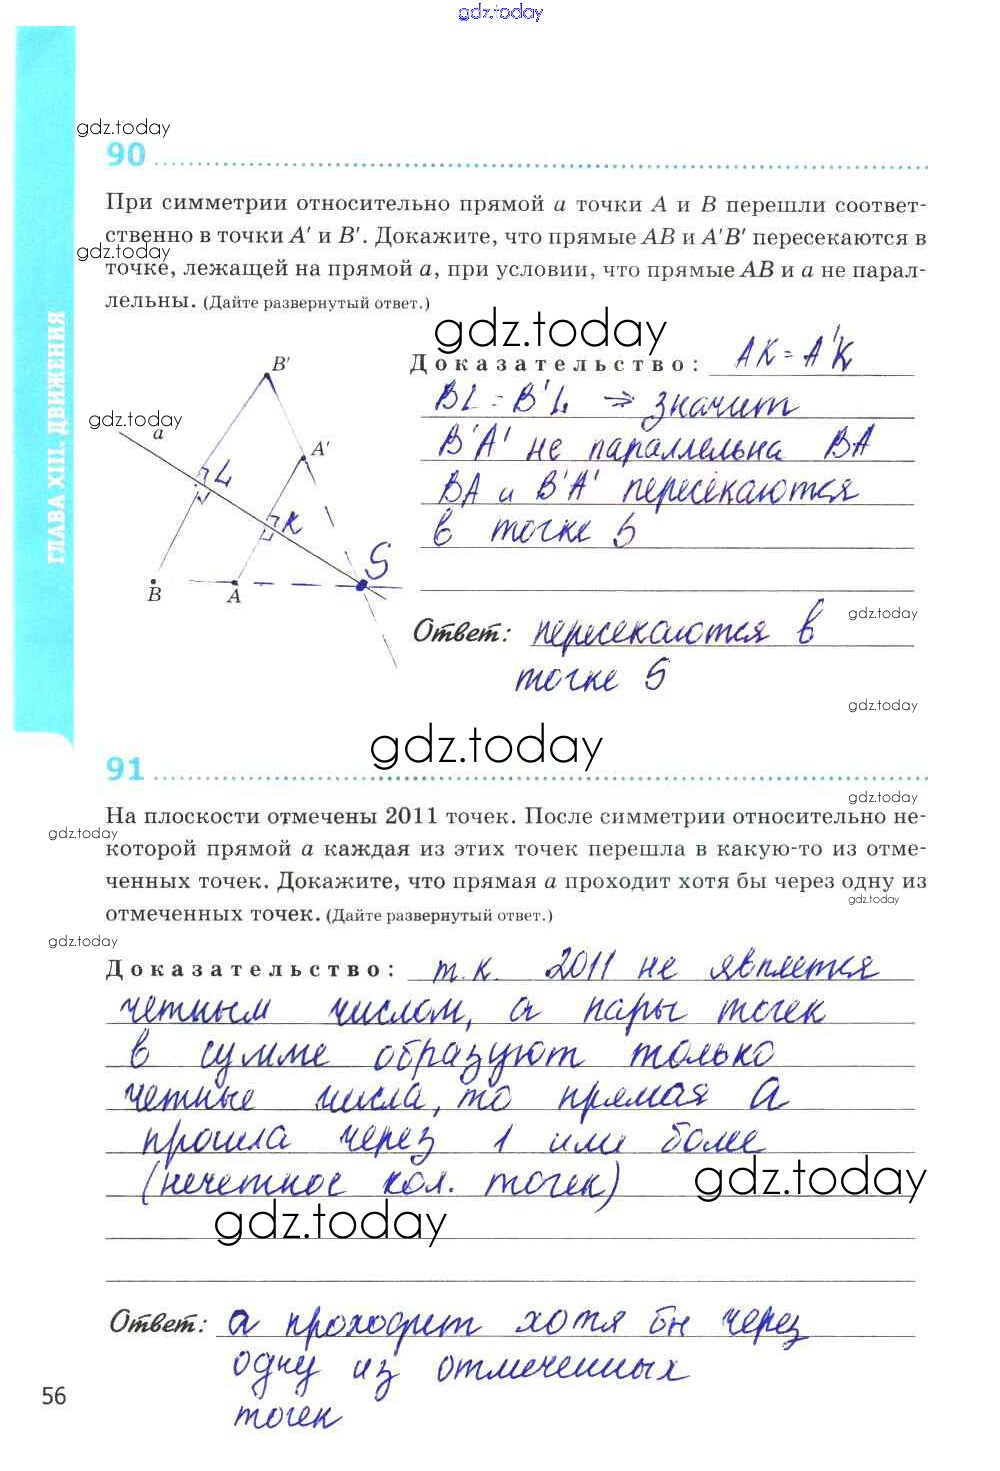 gdz.today
gdz.today
90
При симметрии относительно прямой a точки A и B перешли соответ-
ственно в точки A′ и B′. Докажите, что прямые AB и A′B′ пересекаются в
gdz.today
точке, лежащей на прямой a, при условии, что прямые AB и a не парал-
лельны. (Дайте развернутый ответ.)
ГЛАВА XIII. ДВИЖЕНИЯ
gdz.today
Доказательство: AK = A'K
BL = B'L ⇒ значит
B'A' не параллельна BA
BA и B'A' пересекаются
в точке S
gdz.today
a
B′
A′
L
K
S
B
A
gdz.today
Ответ: пересекаются в
точке S
gdz.today
gdz.today
91
gdz.today
На плоскости отмечены 2011 точек. После симметрии относительно не-
gdz.today
которой прямой a каждая из этих точек перешла в какую-то из отме-
ченных точек. Докажите, что прямая a проходит хотя бы через одну из
gdz.today
отмеченных точек. (Дайте развернутый ответ.)
gdz.today
Доказательство: т.к. 2011 не является
четным числом, а пары точек
в сумме образуют только
четные числа, то прямая a
прошла через 1 или более
(нечетное кол. точек)
gdz.today
gdz.today
Ответ: a проходит хотя бы через
одну из отмеченных
точек
56